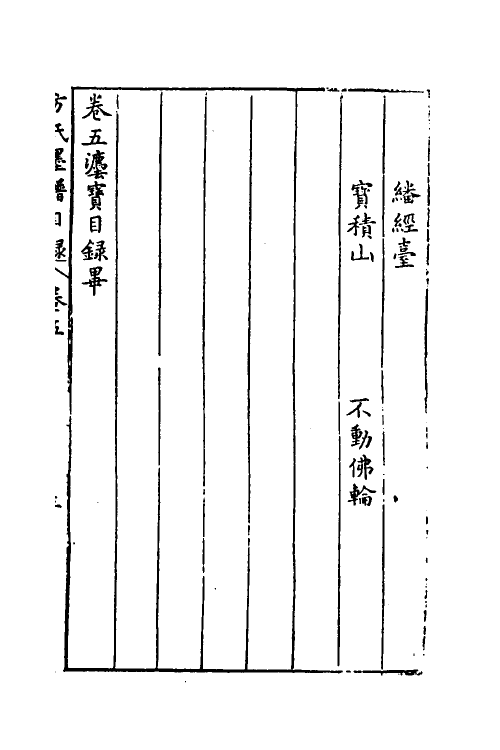 繙經臺
寶積山 不動佛輪
卷五瀍寶目録畢
方氏墨譜目録 卷五